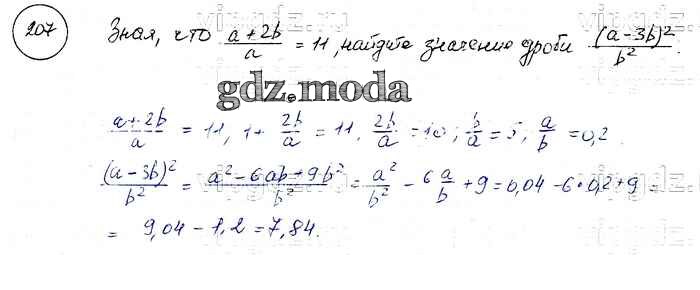 207 Зная, что (a+2b)/a = 11, найдите значение дроби (a-3b)²/b².
gdz.moda
(a+2b)/a = 11, 1+ 2b/a = 11, 2b/a = 10; b/a = 5, a/b = 0,2.
(a-3b)²/b² = (a²-6ab+9b²)/b² = a²/b² - 6 a/b + 9 = 0,04 - 6·0,2+9 =
= 9,04 - 1,2 = 7,84.